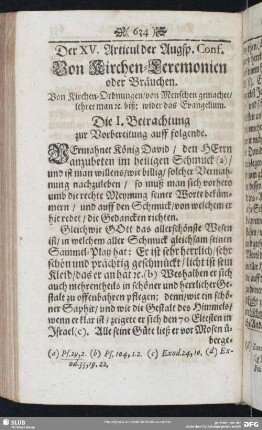 634
Der XV. Articul der Augsp. Conf.
Von Kirchen-Ceremonien
oder Bräuchen.
Von Kirchen-Ordnungen/von Menschen gemachet/
lehret man ꝛc. biß: wider das Evangelium.
Die I. Betrachtung
zur Vorbereitung auff folgende.
VErmahnet König David / den HErrn
anzubeten im heiligen Schmuck (a)/
und ist man willens/wie billig/ solcher Vermah-
nung nachzuleben / so muß man sich vorhero
umb die rechte Meynung seiner Worte beküm-
mern / und auff den Schmuck/von welchem er
hie redet / die Gedancken richten.
Gleichwie GOtt das allerschönste Wesen
ist/ in welchem aller Schmuck gleichsam seinen
Sammel-Platz hat: Er ist sehr herrlich/sehr
schön und prächtig geschmückt/ licht ist sein
Kleid/das er an hat ꝛc.(b) Weshalben er sich
auch mehrentheils in schöner und herrlicher Ge-
stalt zu offenbahren pflegen; denn/wie ein schö-
ner Saphir/ und wie die Gestalt des Himmels/
wenn er klar ist / zeigete er sich den 70 Eltesten in
Israel(c). Alle seine Güte ließ er vor Mosen ü-
berge-
(a) Ps.29,2. (b) Ps.104,1.2. (c) Exod.24,10. (d) Ex-
od.33,19.22.
SLUB
DFG